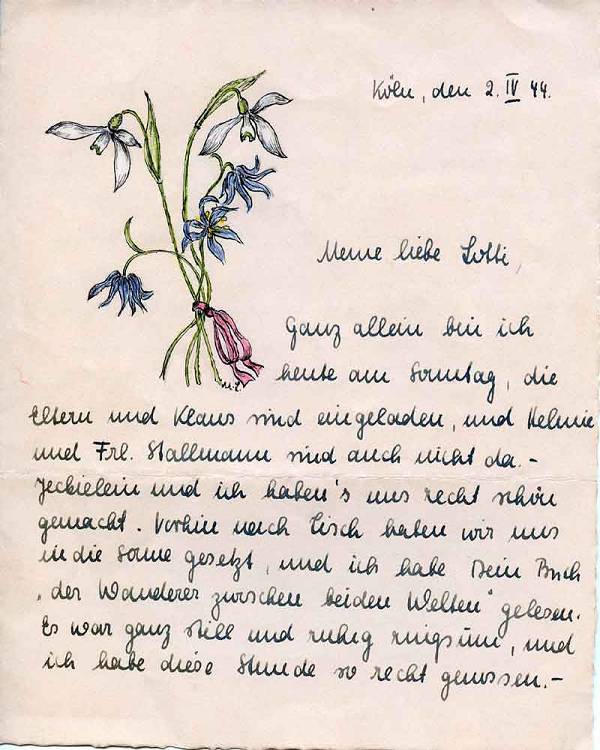 Köln, den 2. IV 44.
Meine liebe Lotti,
Ganz allein bin ich
heute am Sonntag, die
Eltern und Klaus sind eingeladen, und Helmie
und Frl. Stallmann sind auch nicht da. -
und ich haben's uns recht schön
gemacht. Vorhin nach Tisch haben wir uns
in die Sonne gesetzt, und ich habe Dein Buch
„der Wanderer zwischen beiden Welten" gelesen.
Es war ganz still und ruhig ringsum, und
ich habe diese Stunde so recht genossen. -